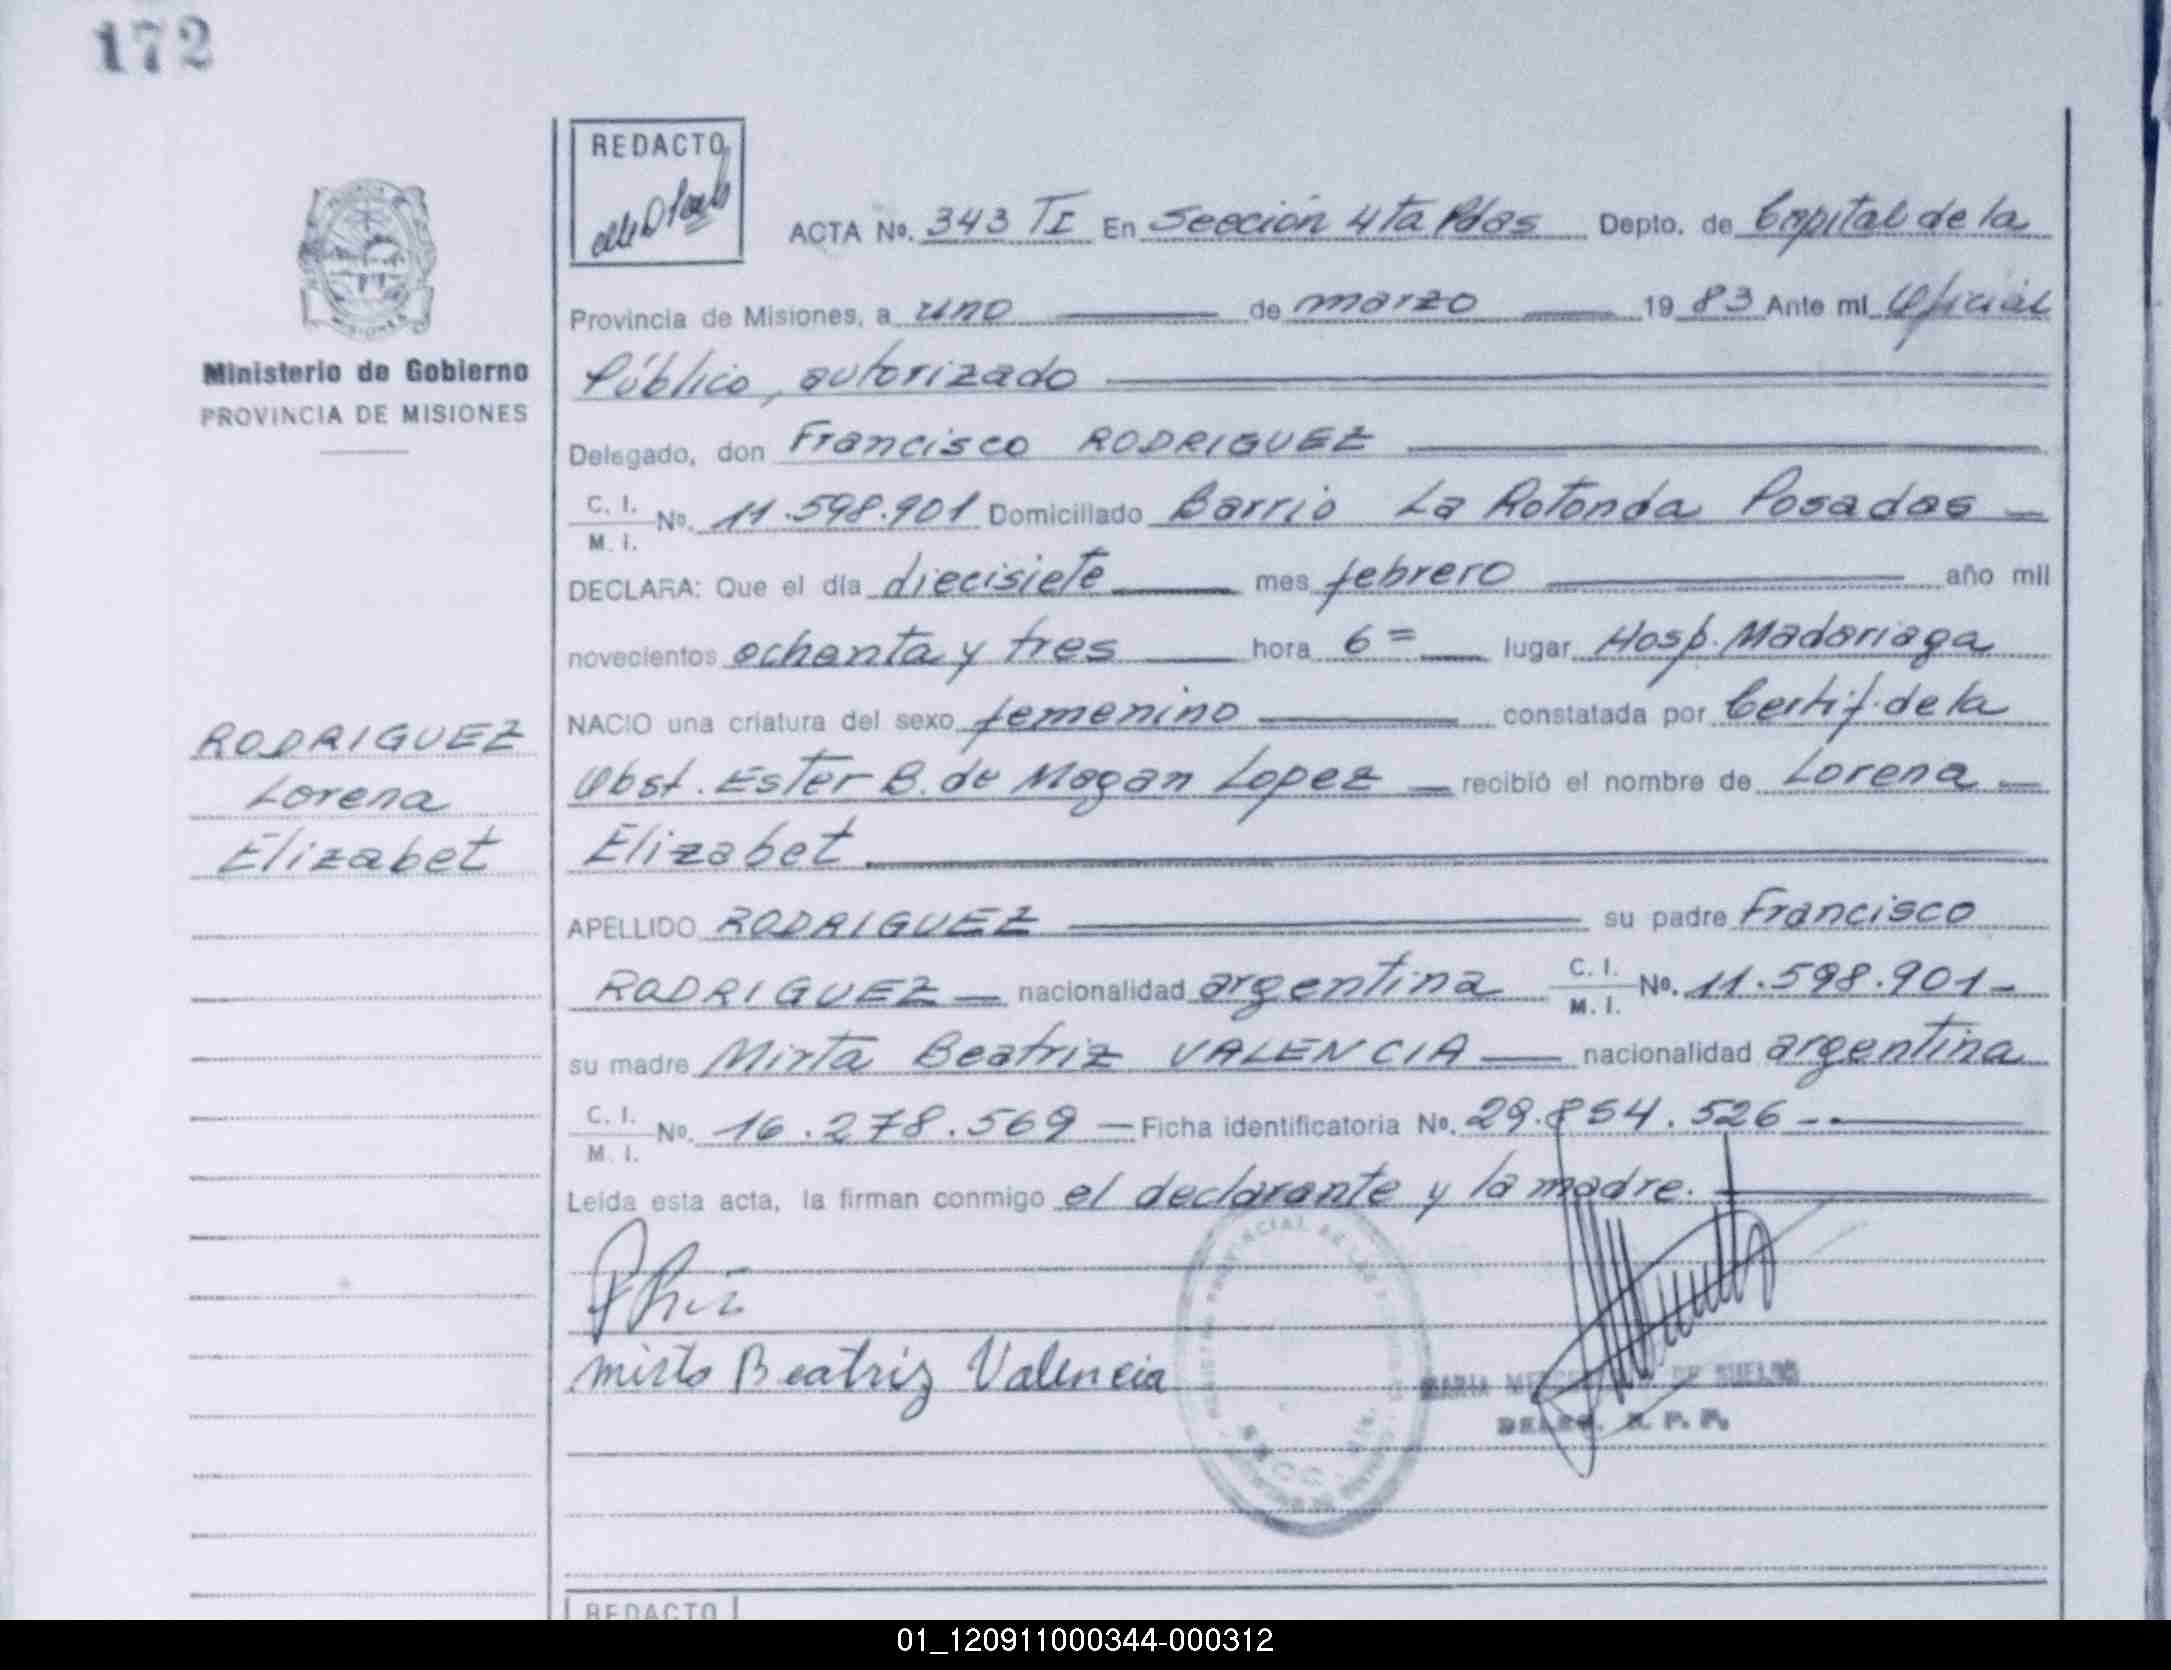 172
REDACTO
ACTA No. 343 TI En Sección 4ta Pdas Depto. de Capital de la
Provincia de Misiones, a uno de marzo 1983 Ante mí Oficial
Público, autorizado
Ministerio de Gobierno
PROVINCIA DE MISIONES
Delegado, don Francisco RODRIGUEZ
C. I.
M. I. No. 11.598.901 Domiciliado Barrio La Rotonda Posadas
DECLARA: Que el día diecisiete mes febrero año mil
novecientos ochenta y tres hora 6= lugar Hosp. Madariaga
NACIO una criatura del sexo femenino constatada por Certif. de la
Obst. Ester B. de Magan Lopez recibió el nombre de Lorena
Elizabet
RODRIGUEZ
Lorena
Elizabet
APELLIDO RODRIGUEZ su padre Francisco
RODRIGUEZ nacionalidad argentina C. I. M. I. No. 11.598.901-
su madre Mirta Beatriz VALENCIA nacionalidad argentina
C. I.
M. I. No. 16.278.569 Ficha identificatoria No. 29.854.526
Leida esta acta, la firman conmigo el declarante y la madre.
Mirta Beatriz Valencia
MARIA DE SUELDO
DELEG. R. P. P.
REDACTO
01_120911000344-000312